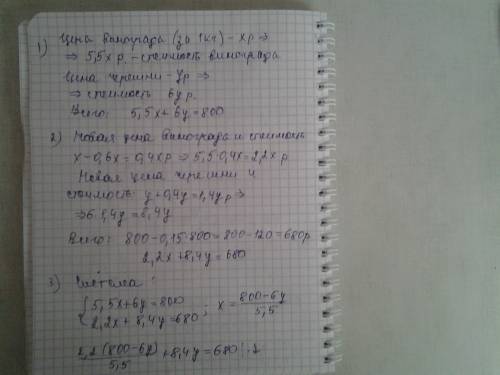 1) Цена винограда (за 1кг) – xр ⇒
⇒ 5,5x р. – стоимость винограда
Цена черешни – yр ⇒
⇒ стоимость 6y р.
Всего: 5,5x + 6y = 800
2) Новая цена винограда и стоимость
x – 0,6x = 0,4xр ⇒ 5,5·0,4x = 2,2x р.
Новая цена черешни и
стоимость: y + 0,4y = 1,4yр ⇒
⇒ 6·1,4y = 8,4y
Всего: 800 – 0,15·800 = 800 – 120 = 680р
2,2x + 8,4y = 680
3) Система:
{ 5,5x + 6y = 800
2,2x + 8,4y = 680 ; x = (800 – 6y)/5,5
2,2(800 – 6y)/5,5 + 8,4y = 680